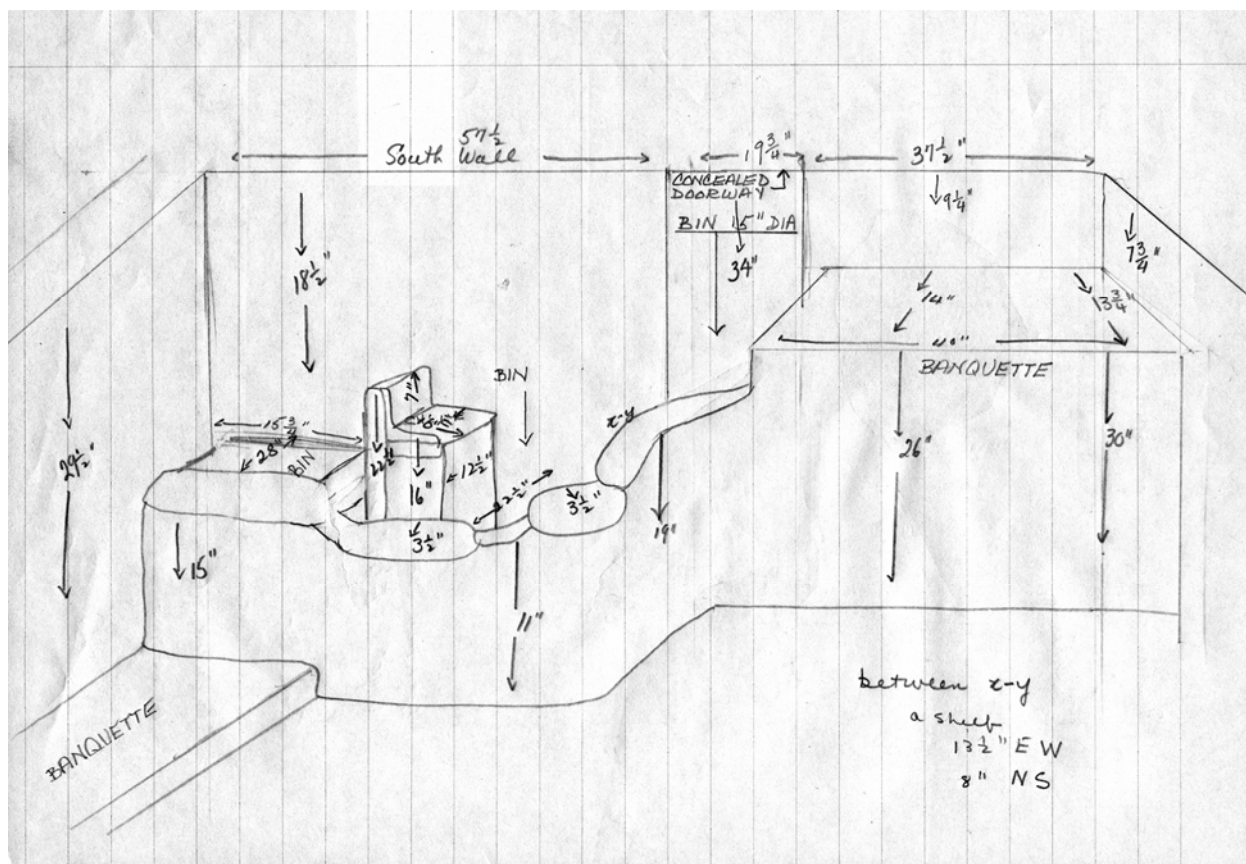 57½
South Wall
19¾"
37½"
CONCEALED
DOORWAY
BIN 15" DIA
34"
9¼"
7¾"
18½"
14"
13¾"
BANQUETTE
7"
BIN
15¾"
28"
BIN
22½
16"
12½"
x-y
3½"
3½"
29½"
15"
19"
26"
30"
11"
BANQUETTE
between x-y
a shelf
13½" E W
8" N S